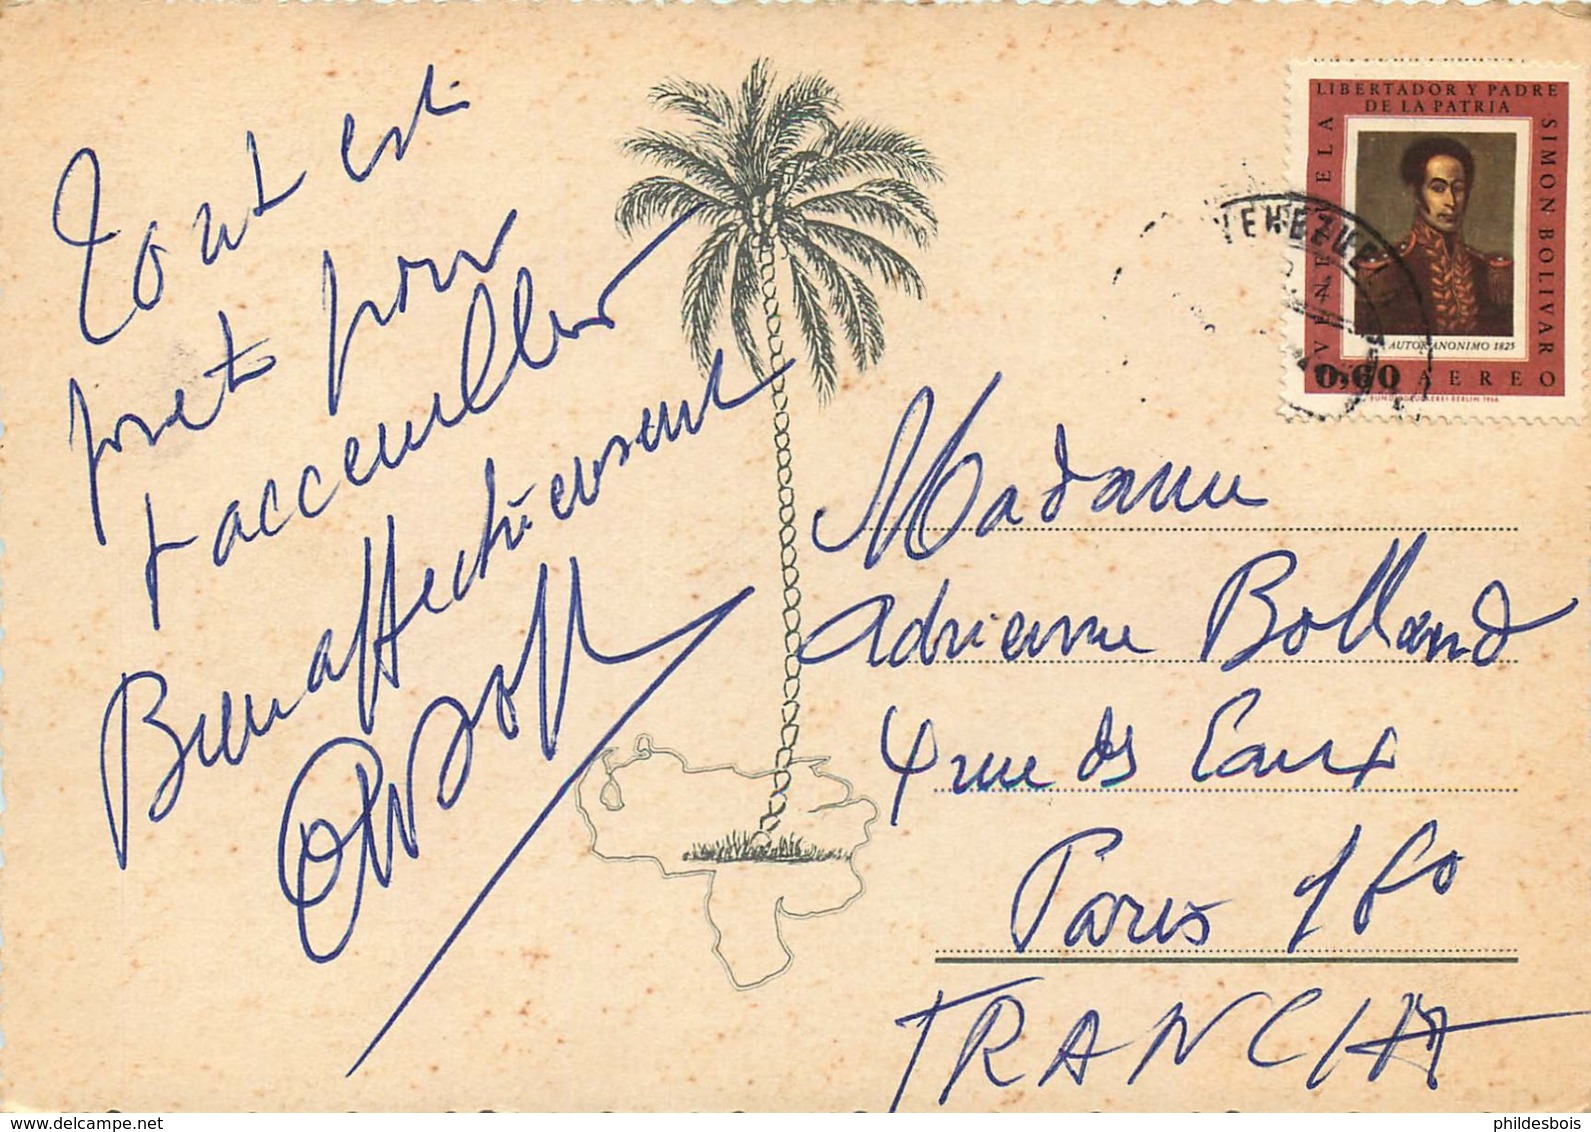 Tout est
prêt pour
t'accueillir
Bien affectueusement
LIBERTADOR Y PADRE
DE LA PATRIA
VENEZUELA
SIMON BOLIVAR
AUTOR ANONIMO 1825
0,60 AEREO
BERLIN 1966
VENEZUE
Madame
Adrienne Bolland
4 rue des Eaux
Paris 16°
FRANCIA
delcampe.net
phildesbois